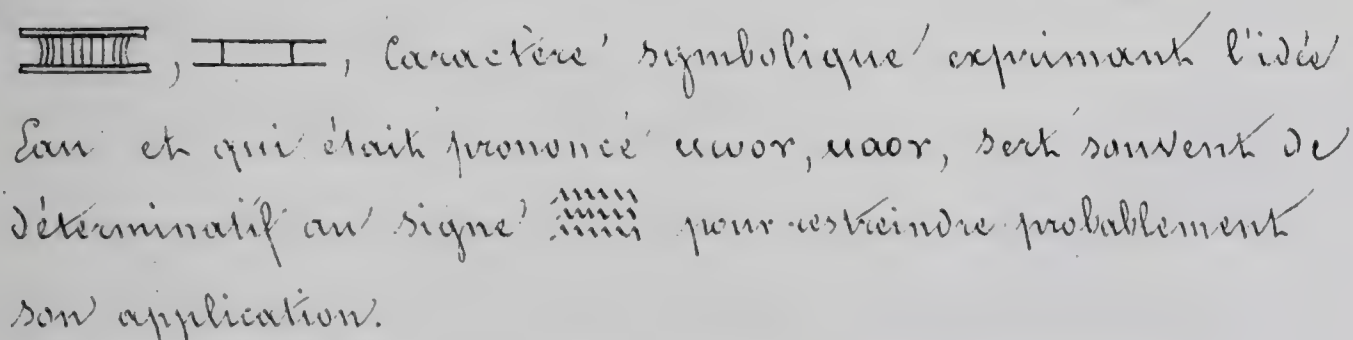 , , Caractère symbolique exprimant l'idée
Eau et qui était prononcé ⲙⲱⲟⲩ, ⲙⲁⲟⲩ, sert souvent de
déterminatif au signe pour restreindre probablement
son application.